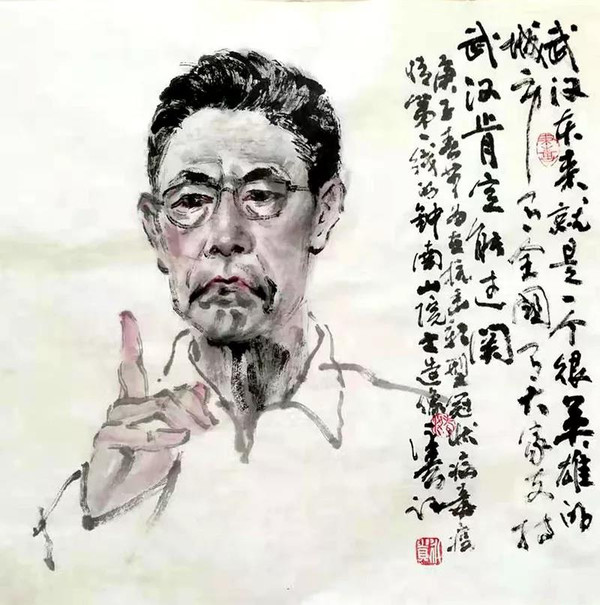 武汉本来就是一个很英雄的
城市有全国有大家支持
武汉肯定能过关
庚子春节为在抗击新型冠状病毒疫
情第一线的钟南山院士造像